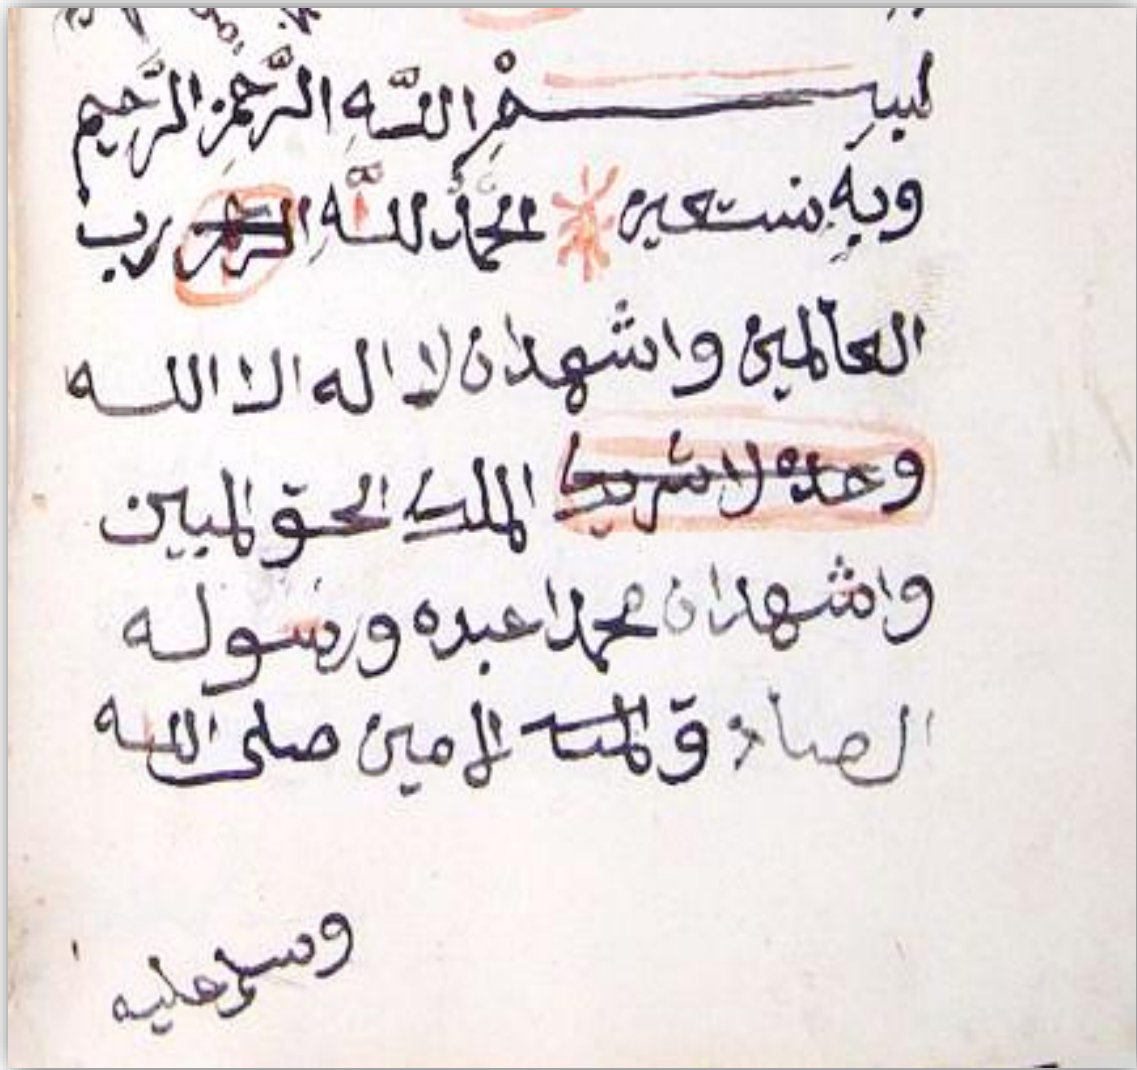 بسم اللَّهِ الرَّحمنِ الرَّحِيم
وبه نستعين الحمدُ للَّه رب
العالمين واشهد ان لا اله الا الله
وحده لا شريك الملك الحق المبين
واشهد ان محمدا عبده ورسوله
الصادق الامين صلى الله
وسلم عليه